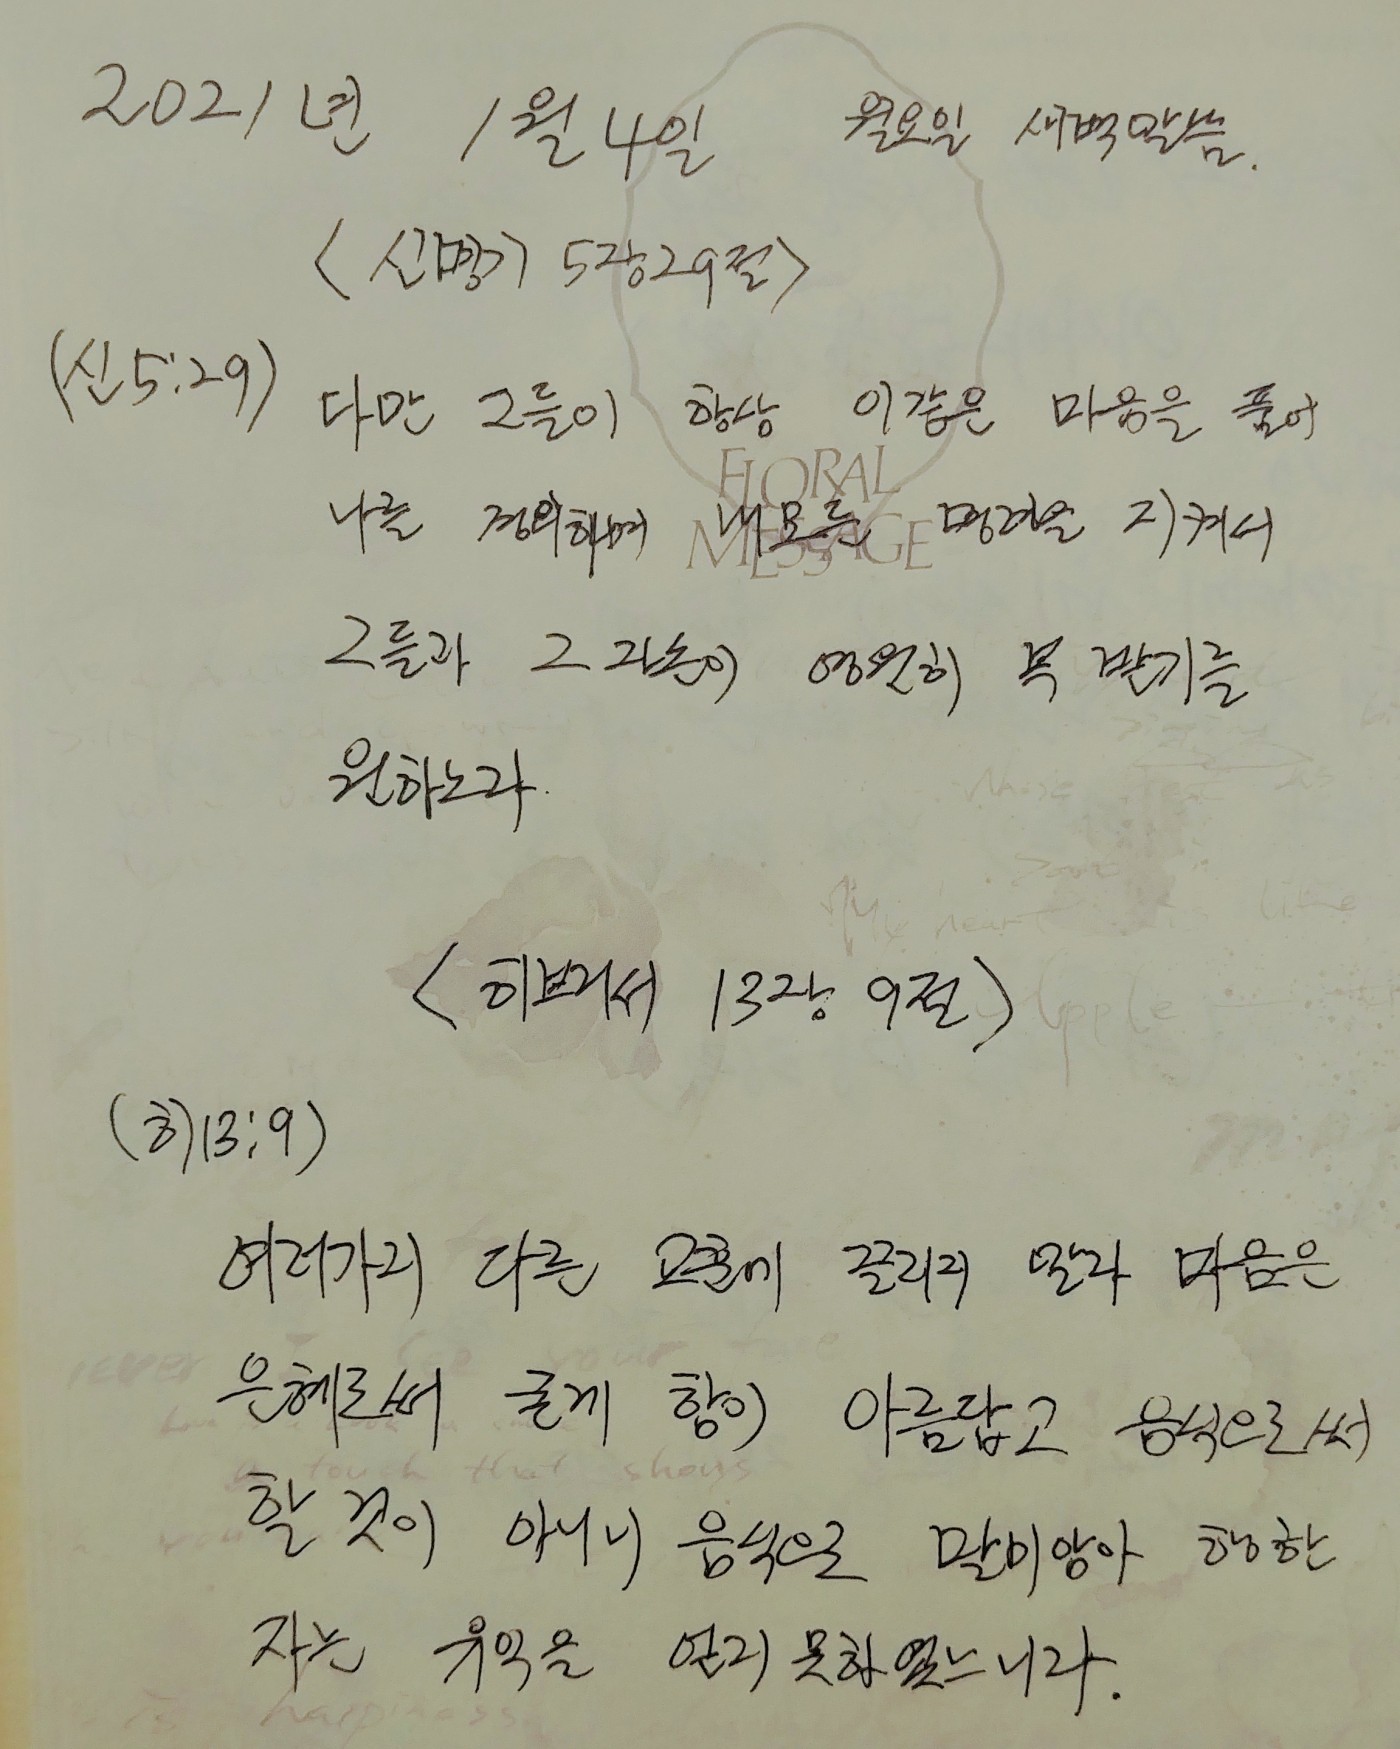 2021년 1월 4일 월요일 새벽말씀.
<신명기 5장29절>
(신5:29) 다만 그들이 항상 이같은 마음을 품어
FLORAL
나를 경외하며 내 모든 명령을 지켜서
MESSAGE
그들과 그 자손이 영원히 복 받기를
원하노라.
<히브리서 13장 9절>
(히13:9)
여러가지 다른 교훈에 끌리지 말라 마음은
은혜로써 굳게 함이 아름답고 음식으로써
할 것이 아니니 음식으로 말미암아 행한
자는 유익을 얻지 못하였느니라.